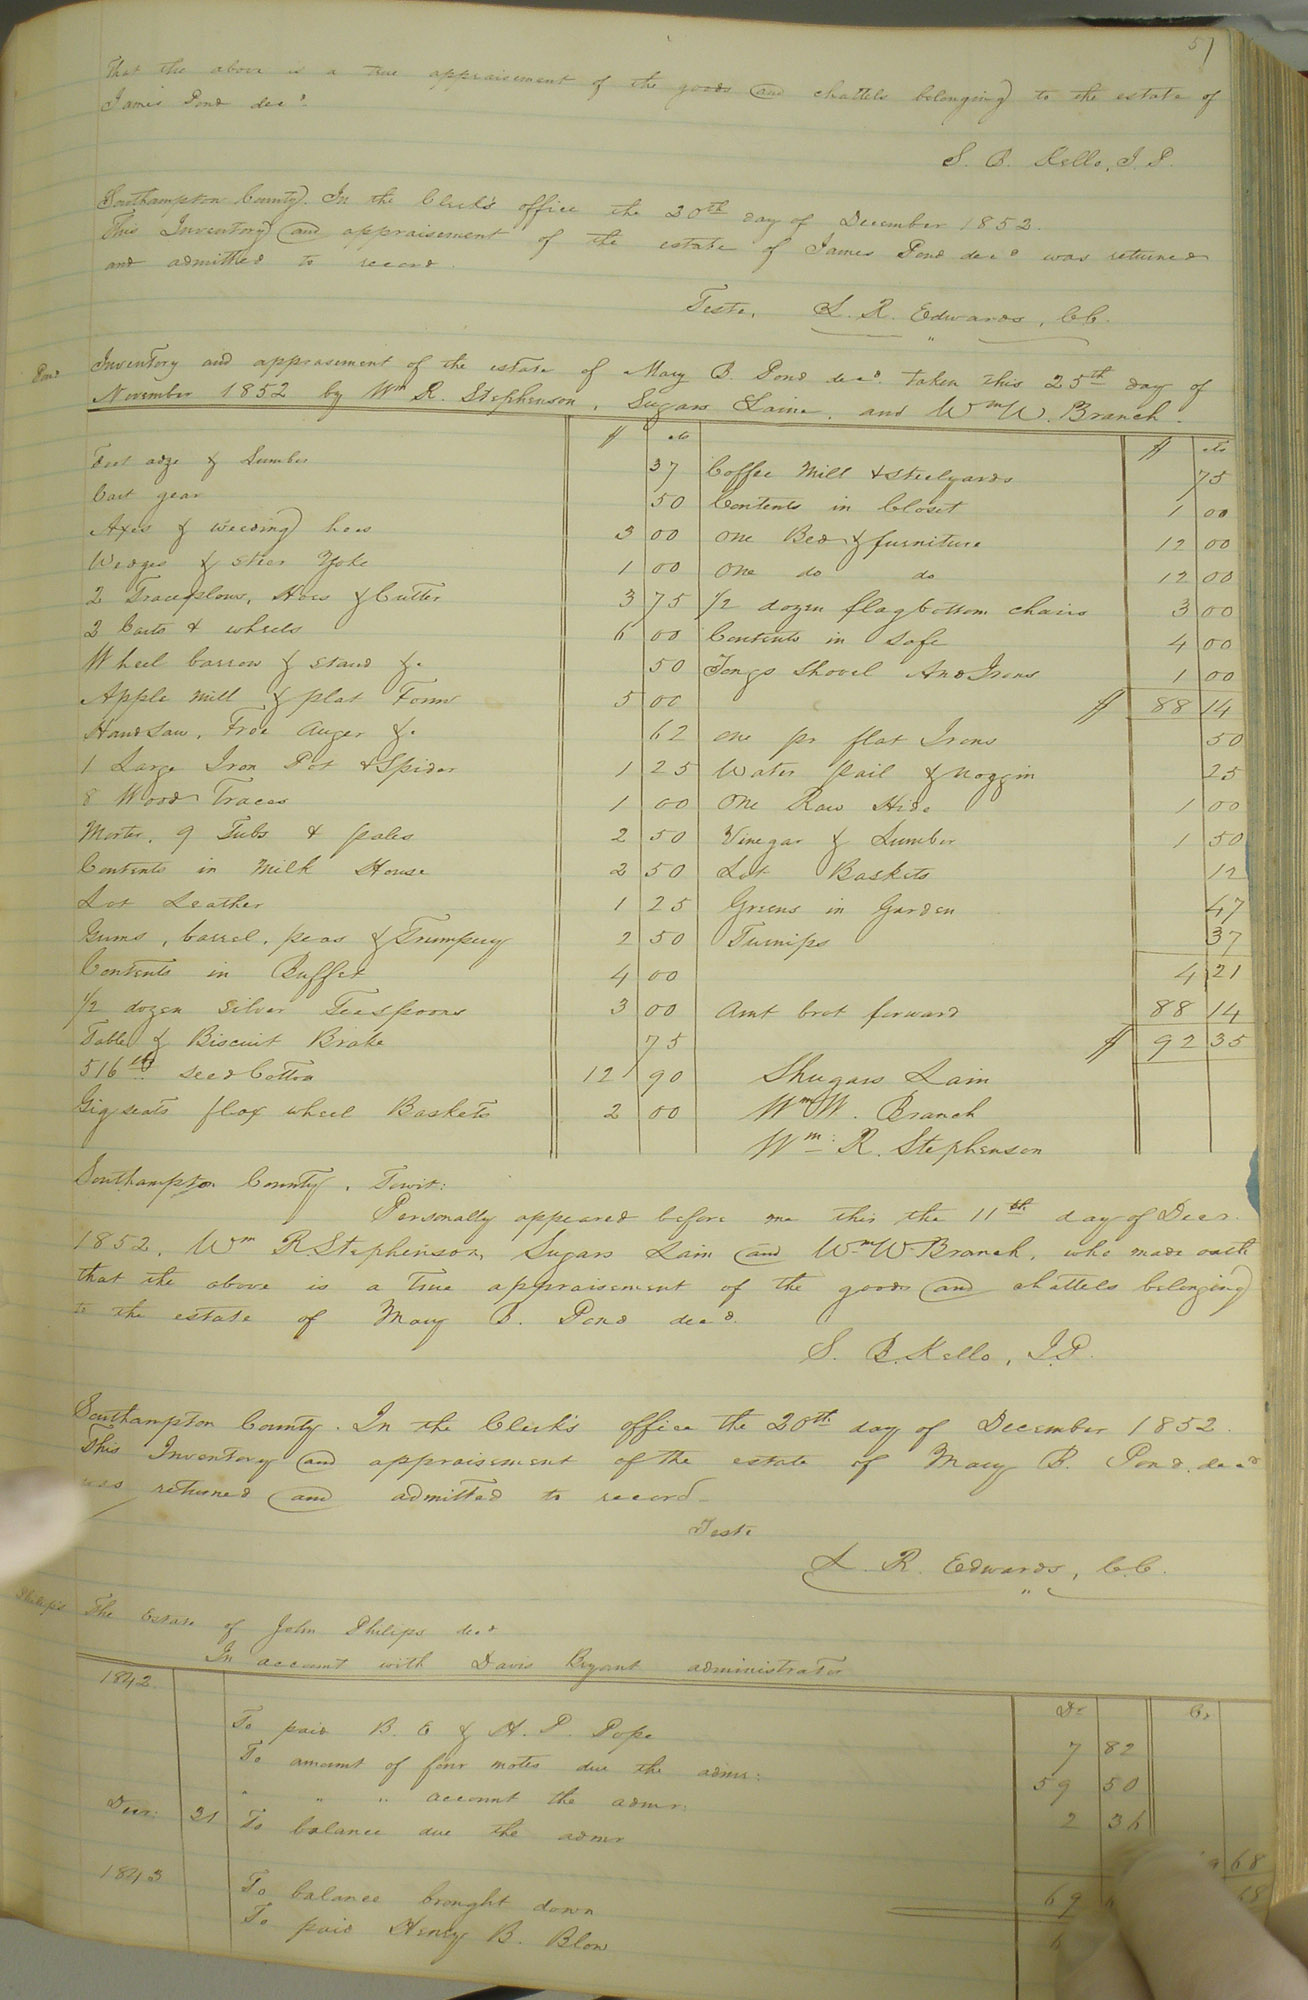 57
that the above is a true appraisement of the goods and chattels belonging to the estate of
James Pond decd.
S. B. Kello, J. P.
Southampton County. In the Clerk's office the 20th day of December 1852.
This Inventory and appraisement of the estate of James Pond decd was returned
and admitted to record.
Teste, L. R. Edwards, C.C.
Pond
Inventory and appraisement of the estate of Mary B. Pond decd. taken this 25th day of
November 1852 by Wm R. Stephenson, Sugars Laine, and Wm W. Branch.
$ cts $ cts
Foot adze & Lumber 37 Coffee Mill & Steelyards 75
Cart gear 50 Contents in Closet 1 00
Axes & weeding hoes 3 00 One Bed & furniture 12 00
Wedges & steer Yoke 1 00 One do do 12 00
2 Traceplows, Hoes & Cutter 3 75 1/2 dozen flagbottom chairs 3 00
2 Carts & wheels 6 00 Contents in Safe 4 00
Wheel barrow & stand &. 50 Tongs Shovel AndIrons 1 00
Apple mill & plat Form 5 00 $ 88 14
Hand Saw, Froe auger &. 62 One pr flat Irons 50
1 Large Iron Pot & Spider 1 25 Water pail & noggin 25
8 Wood Traces 1 00 One Raw Hide 1 00
Morter, 9 Tubs & pales 2 50 Vinegar & Lumber 1 50
Contents in Milk House 2 50 Lot Baskets 12
Lot Leather 1 25 Greens in Garden 47
Gums, barrel, peas & Trumpery 2 50 Turnips 37
Contents in Buffet 4 00 4 21
1/2 dozen Silver Teaspoons 3 00 Amt brot forward 88 14
Table & Biscuit Brake 75 $ 92 35
516 lb seed Cotton 12 90 Shugars Lain
Gig seats flax wheel Baskets 2 00 Wm W. Branch
Wm: R. Stephenson
Southampton County, Towit:
Personally appeared before me this the 11th day of Decr.
1852, Wm R. Stephenson, Sugars Lain and Wm W Branch, who made oath
that the above is a true appraisement of the goods and chattels belonging
to the estate of Mary B. Pond decd.
S. B. Kello, J.P.
Southampton County. In the Clerk's office the 20th day of December 1852.
This Inventory and appraisement of the estate of Mary B. Pond, decd
was returned and admitted to record
Teste
L. R. Edwards, C.C.
Philips
The Estate of John Philips decd
In account with Davis Bryant administrator
1842 Dr Cr
To paid B. E & H. P. Pope 7 82
To amount of four notes due the admr: 59 50
" " " account the admr: 2 36
Decr: 31 To balance due the admr 68
69 68
1843 To balance brought down
To paid Henry B. Blow